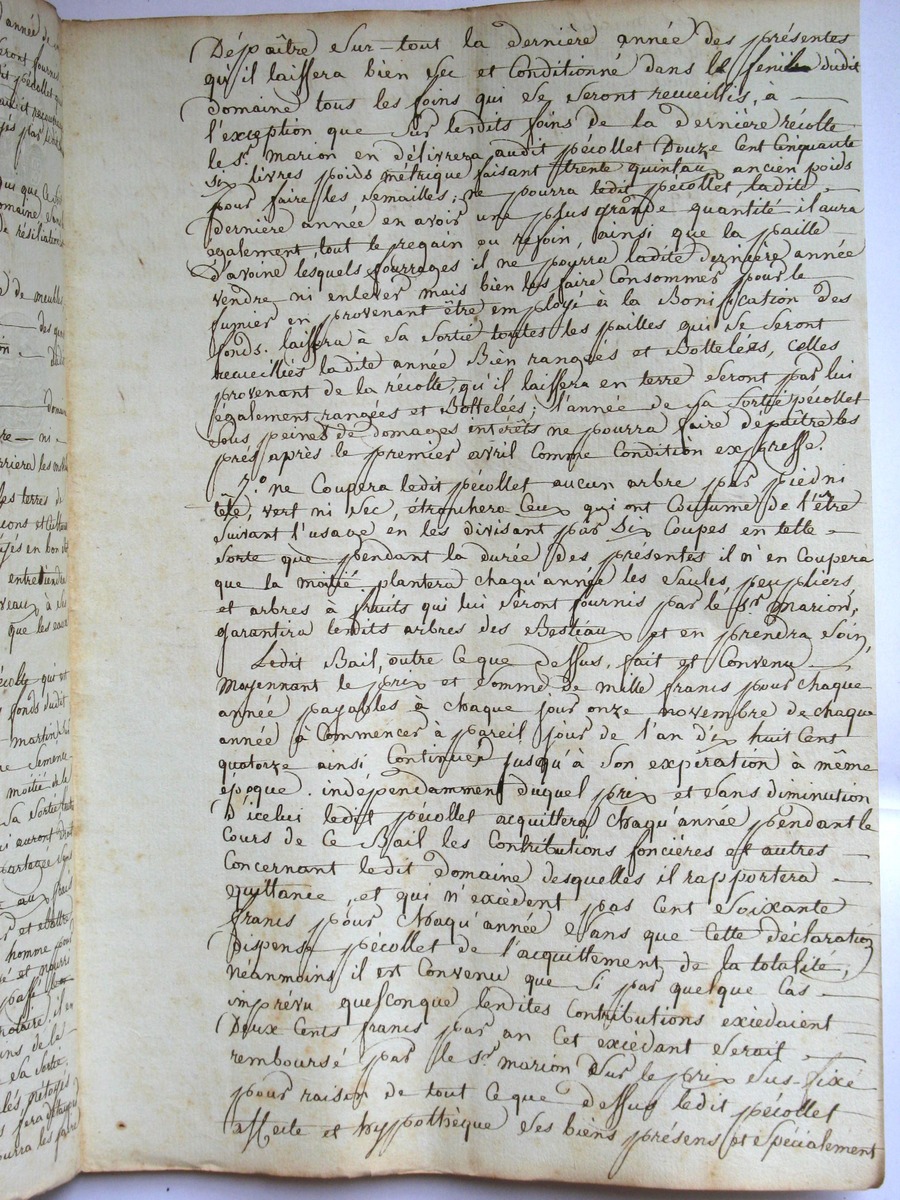 Dépaître sur-tout la dernière année des présentes
qu'il laissera bien sec et conditionné dans le fenil dudit
domaine tous les foins qui se seront recueillis, à
l'exception que sur lesdits foins de la dernière récolte
le Sr. Marion en délivrera audit pécollet Douze Cent Cinquante
six livres poids métrique faisant trente quintaux ancien poids
pour faire les semailles; ne pourra ledit pécollet ladite
dernière année en avoir une plus grande quantité il aura
également tout le regain ou revoin, ainsi que la paille
D'avoine lesquels fourrages il ne pourra ladite dernière année
vendre ni enlever mais bien les faire Consommer pour le
fumier en provenant être employé à la Bonification des
fonds. laissera à sa sortie toutes les pailles qui se seront
recueillies ladite année Bien rangées et Bottelées, celles
provenant de la récolte qu'il laissera en terre seront par lui
également rangées et Bottelées; l'année de sa sortie pécollet
sous peines de domages intérêts ne pourra faire depaître les
prés après le premier avril comme Condition expresse.
7.o ne Coupera ledit pécollet aucun arbre par pied ni
tête, vert ni sec, étronchera Ceux qui ont Coutume de l'être
suivant l'usage en les divisant par Six Coupes en telle
sorte que pendant la durée des présentes il n'en Coupera
que la moitié plantera chaqu'année les saules, peupliers
et arbres à fruits qui lui seront fournis par le Sr. Marion,
garantira lesdits arbres des Bestiaux et en prendra soin
Ledit Bail, outre ce que dessus, fait et Convenu
Moyennant le prix et somme de mille francs pour chaque
année payables à chaque jour onze novembre de chaque
année à Commencer à pareil jour de l'an dix huit Cent
quatorze ainsi Continuer jusqu'à son expiration à même
époque. indépendamment duquel prix et sans diminution
D'icelui ledit pécollet acquittera chaqu'année pendant le
Cours de ce Bail les Contributions foncières et autres
Concernant ledit domaine desquelles il rapportera
quittance, et qui n'excèdent pas Cent Soixante
francs pour Chaqu'année sans que Cette déclaration
Dispense pécollet de l'acquittement de la totalité,
Néanmoins il est Convenu que si par quelque Cas
imprévu quelconque lesdites Contributions excédaient
Deux Cents francs par an Cet excédant serait
remboursé par le Sr. Marion sur le prix sus-fixé
pour raison de tout ce que dessus ledit pécollet
affecte et hyppothèque ses biens présens et spécialement